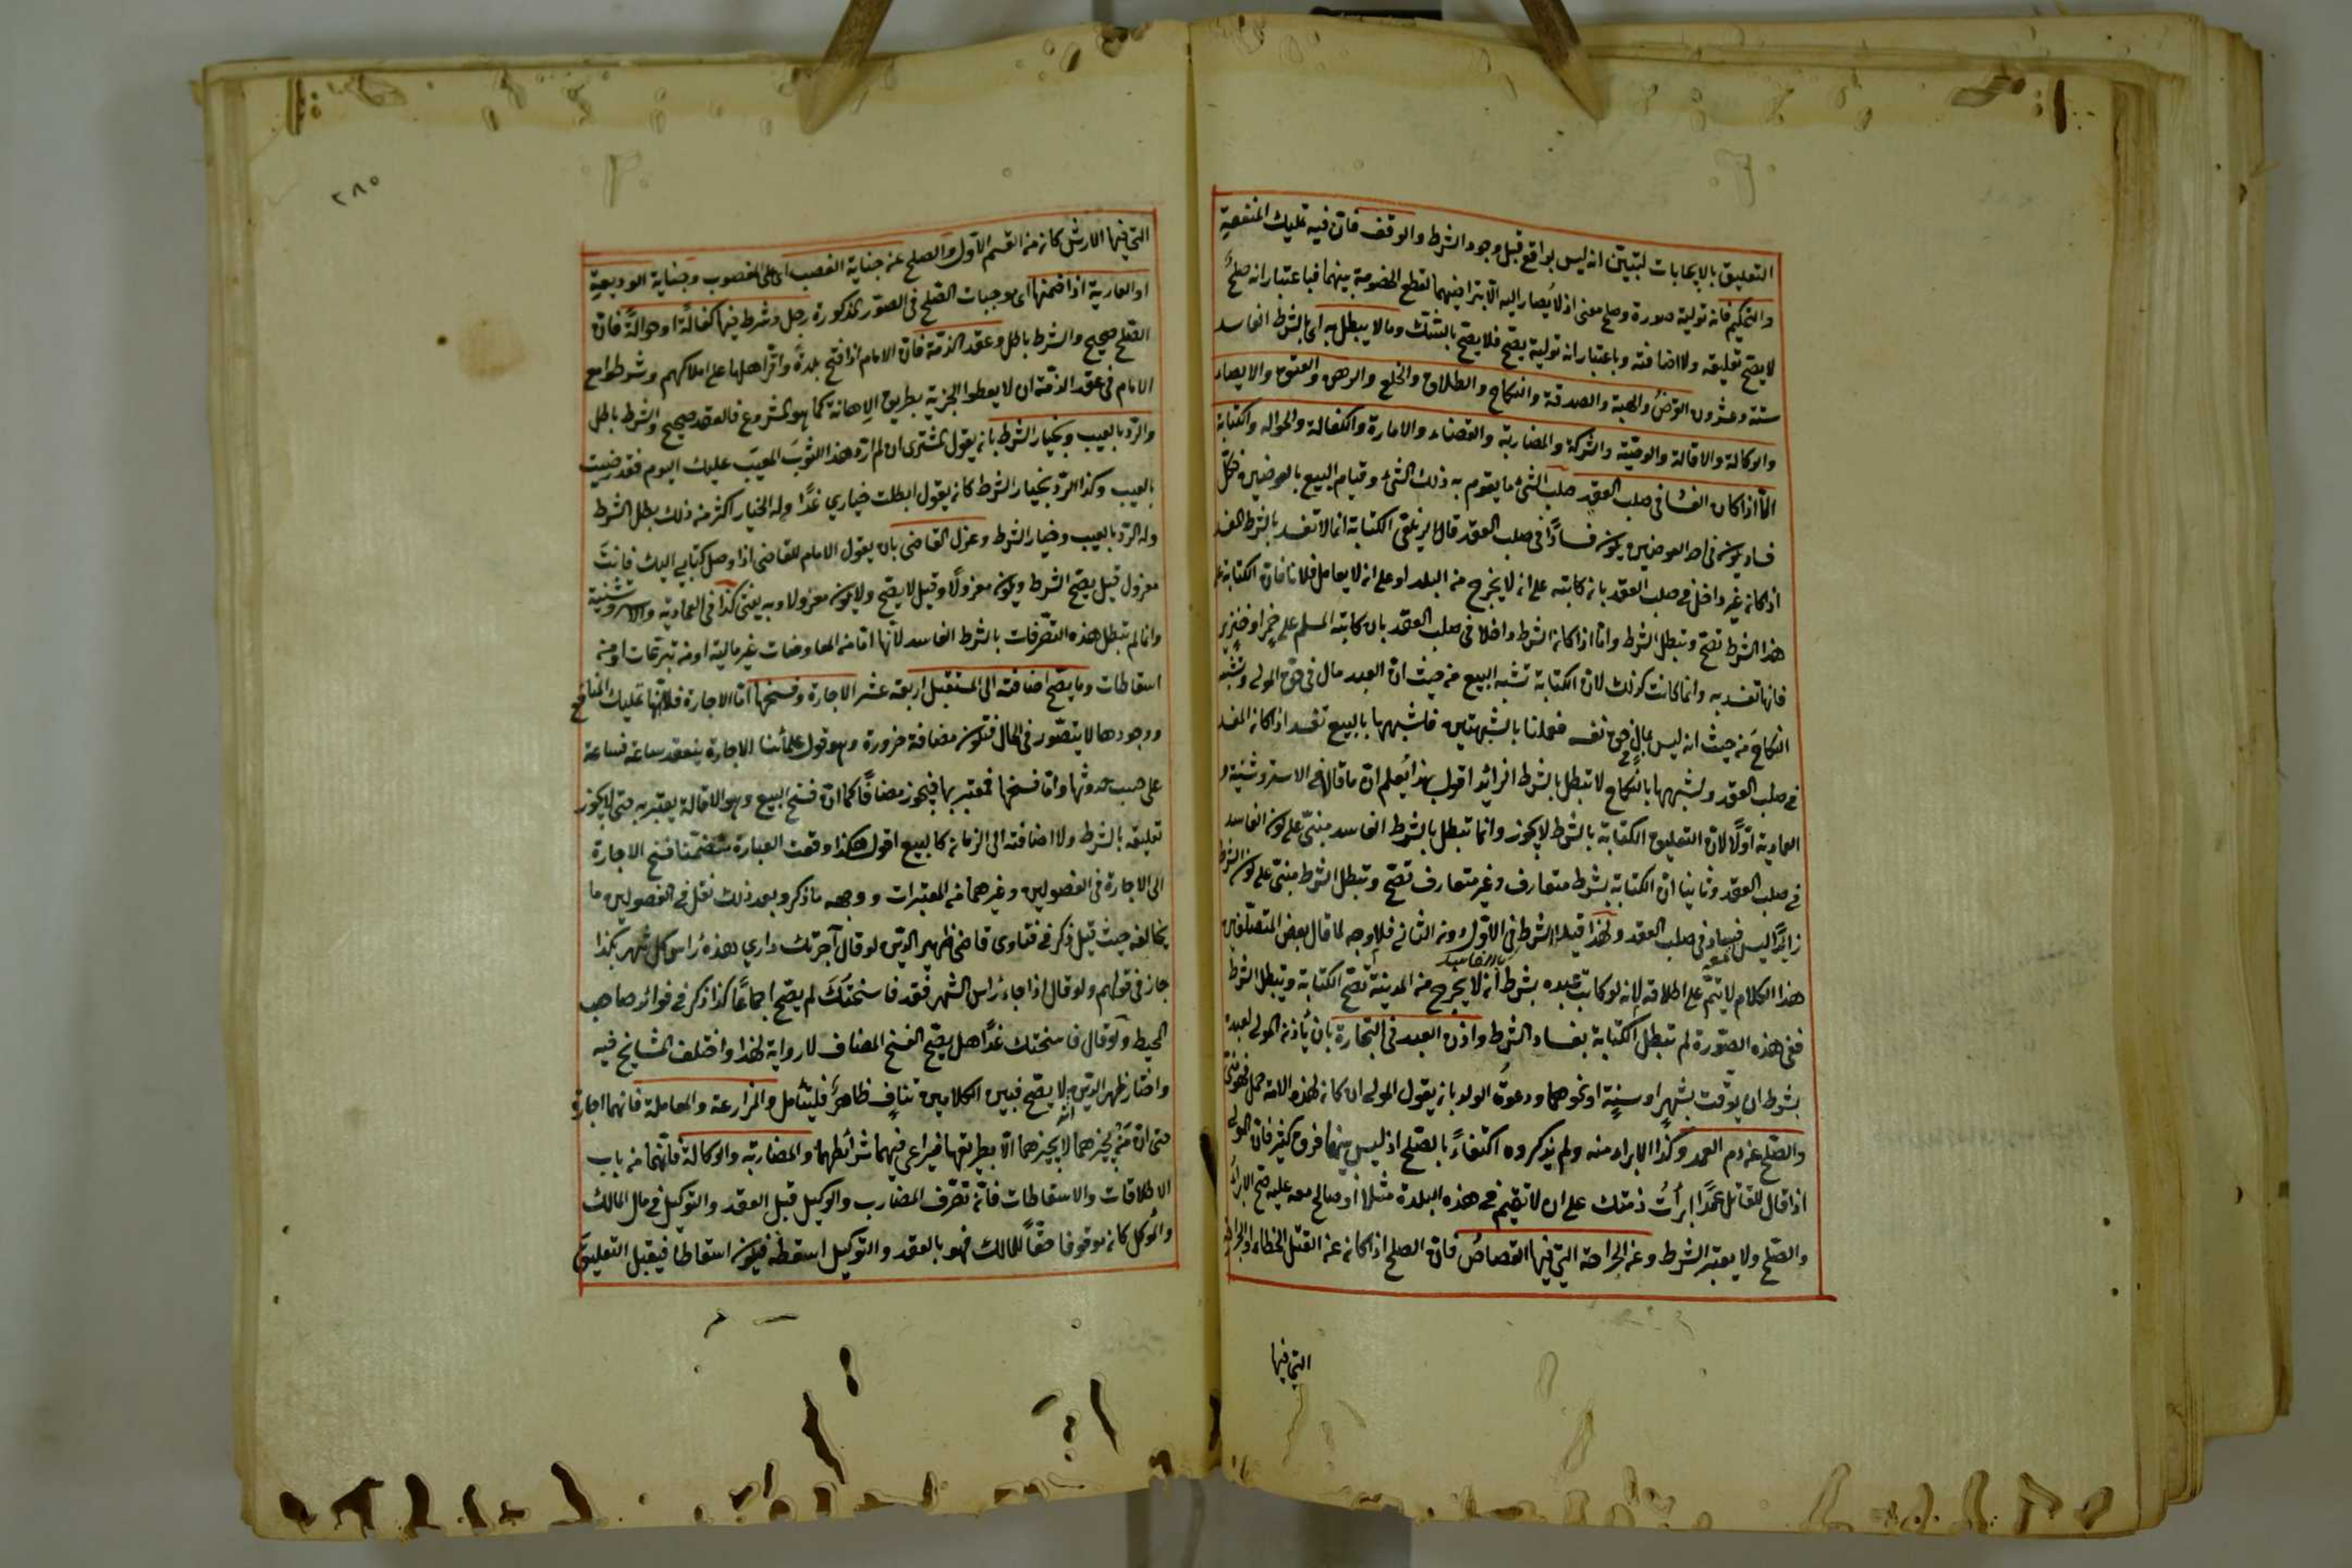 التعليق بالايجابات لتبيّن انه ليس بواقع قبل وجود الشرط والوقف فانّ فيه تمليك المنفعة
والتحكيم فانه تولية صورة وصلح معنى اذ لا يُصار اليه الّا بتراضيهما لقطع الخصومة بينهما فباعتبار انه صلحٌ
لا يصح تعليقه ولا اضافته وباعتبار انه تولية يصحّ فلا يصحّ بالشك وما لا يبطل به اى بالشرط الفاسد
ستة وعشرون القرض والهبة والصدقة والنكاح والطلاق والخلع والرهن والعتق والايصاء
والوكالة والاقالة والوصيّة والشركة والمضاربة والقضاء والامارة والكفالة والحوالة والكتابة
الّا اذا كان الفساد فى صلب العقد صلب الشئ ما يقوم به ذلك الشئ وقيام البيع بالعوضين فكلّ
فساد يكون فى احد العوضين يكون فسادًا فى صلب العقد قال الزيلعى الكتابة انما لا تفسد بالشرط المفسد
اذا كان غير داخل فى صلب العقد بان كاتبه على انه لا يخرج من البلد او على انه لا يعامل فلانا فانّ الكتابة على
هذا الشرط تصحّ ويبطل الشرط وامّا اذا كان الشرط داخلا فى صلب العقد بان كاتبه المسلم على خمرٍ او خنزير
فانها تفسد به وانما كانت كذلك لانّ الكتابة تشبه البيع من حيث انّ العبد مال فى حق المولى وتشبه
النكاحَ من حيث انه ليس بمال فى حق نفسه فعملنا بالشبهتين فلشبهها بالبيع تفسد اذا كان المفسد
فى صلب العقد ولشبهها بالنكاح لا تبطل بالشرط الزائد اقول بهذا يُعلم انّ ما قال فى الاستروشنية و
العمادية اوّلًا لانّ التعليق الكتابة بالشرط لا يجوز وانما تبطل بالشرط الفاسد مبنىّ على كون الفاسد
فى صلب العقد وثانيا انّ الكتابة بشرط متعارف وغير متعارف تصحّ ويبطل الشرط مبنىّ على كون الشرط
زايدًا ليس فساد فى صلب العقد ولهذا قيد الشرط فى الاوّل بالفاسد دون الثانى فلا وجه لما قال بعض المتصلّفين
هذا الكلام لا يتمّ على اطلاقه لانه لو كاتب عبده بشرط ان لا يخرج من المدينة تصحّ الكتابة ويبطل الشرط
ففى هذه الصورة لم تبطل الكتابة بفساد الشرط واذن العبد فى التجارة بان يأذن المولى لعبده
بشرط ان يوقت بشهرٍ او سنةٍ او نحوهما ودعوة الولد بان يقول المولى ان كان لهذه الامة حمل فهو منّى
والصلح عن دم العمد وكذا الابراء منه ولم يذكروه اكتفاءً بالصلح اذ ليس بينهما فرق كثير فانّ الولى
اذا قال للقاتل عمدًا ابرأتُ ذمتك على ان لا تقيم فى هذه البلدة مثلا او صالح معه عليه صح الابراء
والصّلح ولا يعتبر الشرط وعن الجراحة التى فيها القصاص فانّ الصلح اذا كان عن القتل الخطاء او الجراحة
التى فيها
٢٨٥
التى فيها الارش كان من القسم الاوّل والصلح عن جناية الغصب اى على المغصوب وجناية الوديعة
او العارية اذا ضمنها اى موجبات الصّلح فى الصّور المذكورة رجل وشرط فيها كفالةً او حوالةً فانّ
الصّلح صحيح والشرط باطل وعقد الذمّة فانّ الامام اذا فتح بلدةً واقرّ اهلها على املاكهم وشرطوا مع
الامام فى عقد الذمّة ان لا يعطوا الجزية بطريق الاهانة كما هو المشروع فالعقد صحيح والشرط باطل
والردّ بالعيب وبخيار الشرط بان يقول المشترى ان لم اردّ هذا الثوبَ المعيب عليك اليوم فقد رضيت
بالعيب وكذا الردّ بخيار الشرط كان يقول ابطلت خيارى غدًا وله الخيار اكثر من ذلك يبطل الشرط
وله الردّ بالعيب وخيار الشرط وعزل القاضى بان يقول الامام للقاضى اذا وصل كتابى اليك فانتَ
معزول قيل يصحّ الشرط ويكون معزولًا وقيل لا يصحّ ولا يكون معزولا وبه يفتى كذا فى العمادية والاستروشنية
وانما لم تبطل هذه التصّرفات بالشرط الفاسد لانّها امّا من المعاوضات غير مالية او من تبرعات او من
اسقاطات وما يصح اضافته الى المستقبل اربعة عشر الاجارة وفسخها امّا الاجارة فلانّها تمليك المنافع
ووجودها لا يتصّور فى الحال فتكون مضافة ضرورة وهو قول علمائنا الاجارة ينعقد ساعة فساعة
على حسب حدوثها وامّا فسخها فمعتبر بها فيجوز مضافًا كما انّ فسخ البيع وهو الاقالة يعتبر به حتى لا يجوز
تعليقه بالشرط ولا اضافته الى الزمان كالبيع اقول هكذا وقعت العبارة متضمّنا فسخ الاجارة
الى الاجارة فى الفصولين وغيرهما من المعتبرات ووجهه ما ذكر وبعد ذلك نقل فى الفصولين ما
يخالفه حيث قيل ذكر فى فتاوى قاضى ظهير الدين لو قال آجرتك دارى هذه رأس كل شهر بكذا
جاز فى قولهم ولو قال اذا جاء رأس الشهر فقد فاسختُكَ لم يصحّ اجماعًا كذا ذكر فى فوائد صاحب
المحيط ولو قال فاسختك غدًا هل يصحّ الفسخ المضاف لا رواية لهذا واختلف المشايخ فيه
واختار ظهير الدين انّه لا يصحّ فبين الكلامين تنافٍ ظاهرٌ فليتأمل والمزارعة والمعاملة فانهما اجارة
حتى انّ مَنْ يجيزهما لا يجيزهما الّا بطريقها فيراعى فيهما شرائطهما والمضاربة والوكالة فانّهما من باب
الاطلاقات والاسقاطات فانّ تصرّف المضارب والوكيل قبل العقد والتوكيل فى مال المالك
والموكل كان موقوفا حقًا للمالك فهو بالعقد والتوكيل اسقطه فيكون اسقاطا فيقبل التعليق